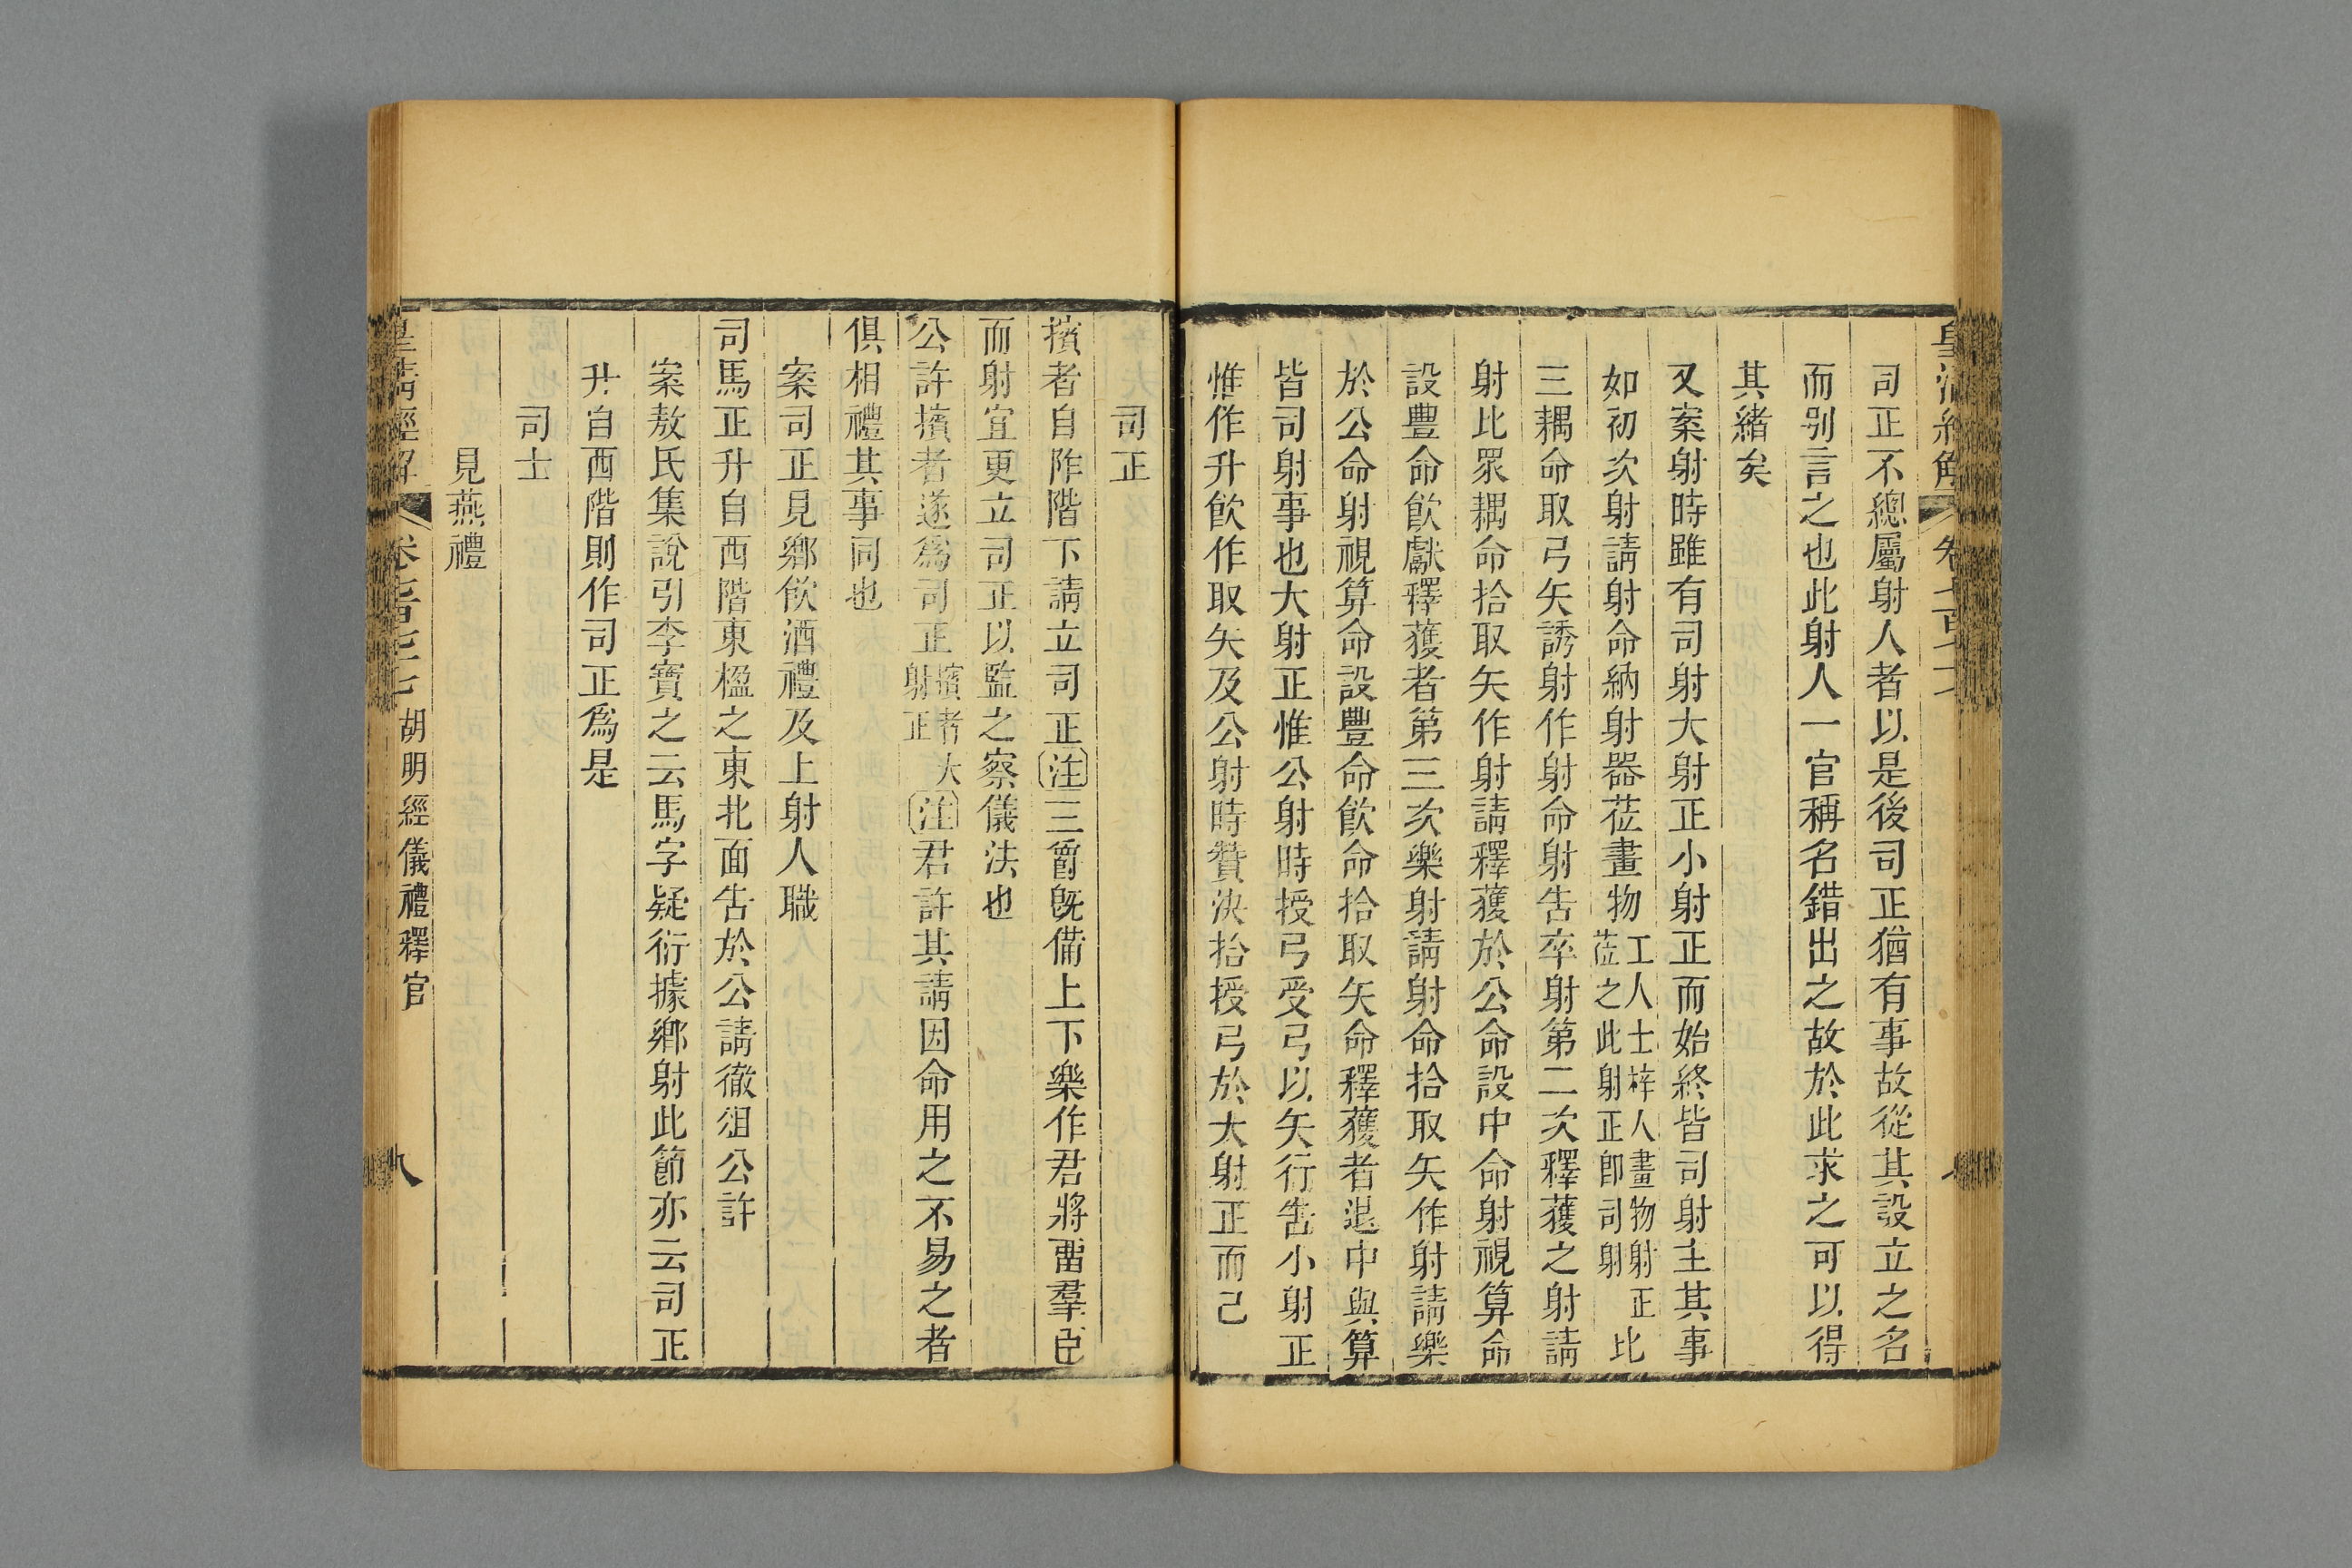 司正不總屬射人者以是後司正猶有事故從其設立之名
而别言之也此射人一官稱名錯出之故於此求之可以得
其緒矣
又案射時雖有司射大射正小射正而始終皆司射主其事
如初次射請射命納射器莅畫物工人士梓人畫物射正莅之此射正卽司射比
三耦命取弓矢誘射作射命射告卒射第二次釋獲之射請
射比眾耦命拾取矢作射請釋獲於公命設中命射視算命
設豐命飲獻釋獲者第三次樂射請射命拾取矢作射請樂
於公命射視算命設豐命飲命拾取矢命釋獲者退中與算
皆司射事也大射正惟公射時授弓受弓以矢行告小射正
惟作升飲作取矢及公射時贊決拾授弓於大射正而已
司正
擯者自阼階下請立司正注三爵旣備上下樂作君將畱羣臣
而射宜更立司正以監之察儀法也
公許擯者遂爲司正擯者大射正注君許其請因命用之不易之者
俱相禮其事同也
案司正見鄉飲酒禮及上射人職
司馬正升自西階東楹之東北面告於公請徹俎公許
案敖氏集說引李寶之云馬字疑衍據鄉射此節亦云司正
升自西階則作司正爲是
司士
見燕禮
皇清經解 卷七百七十七 胡明經儀禮釋官 八